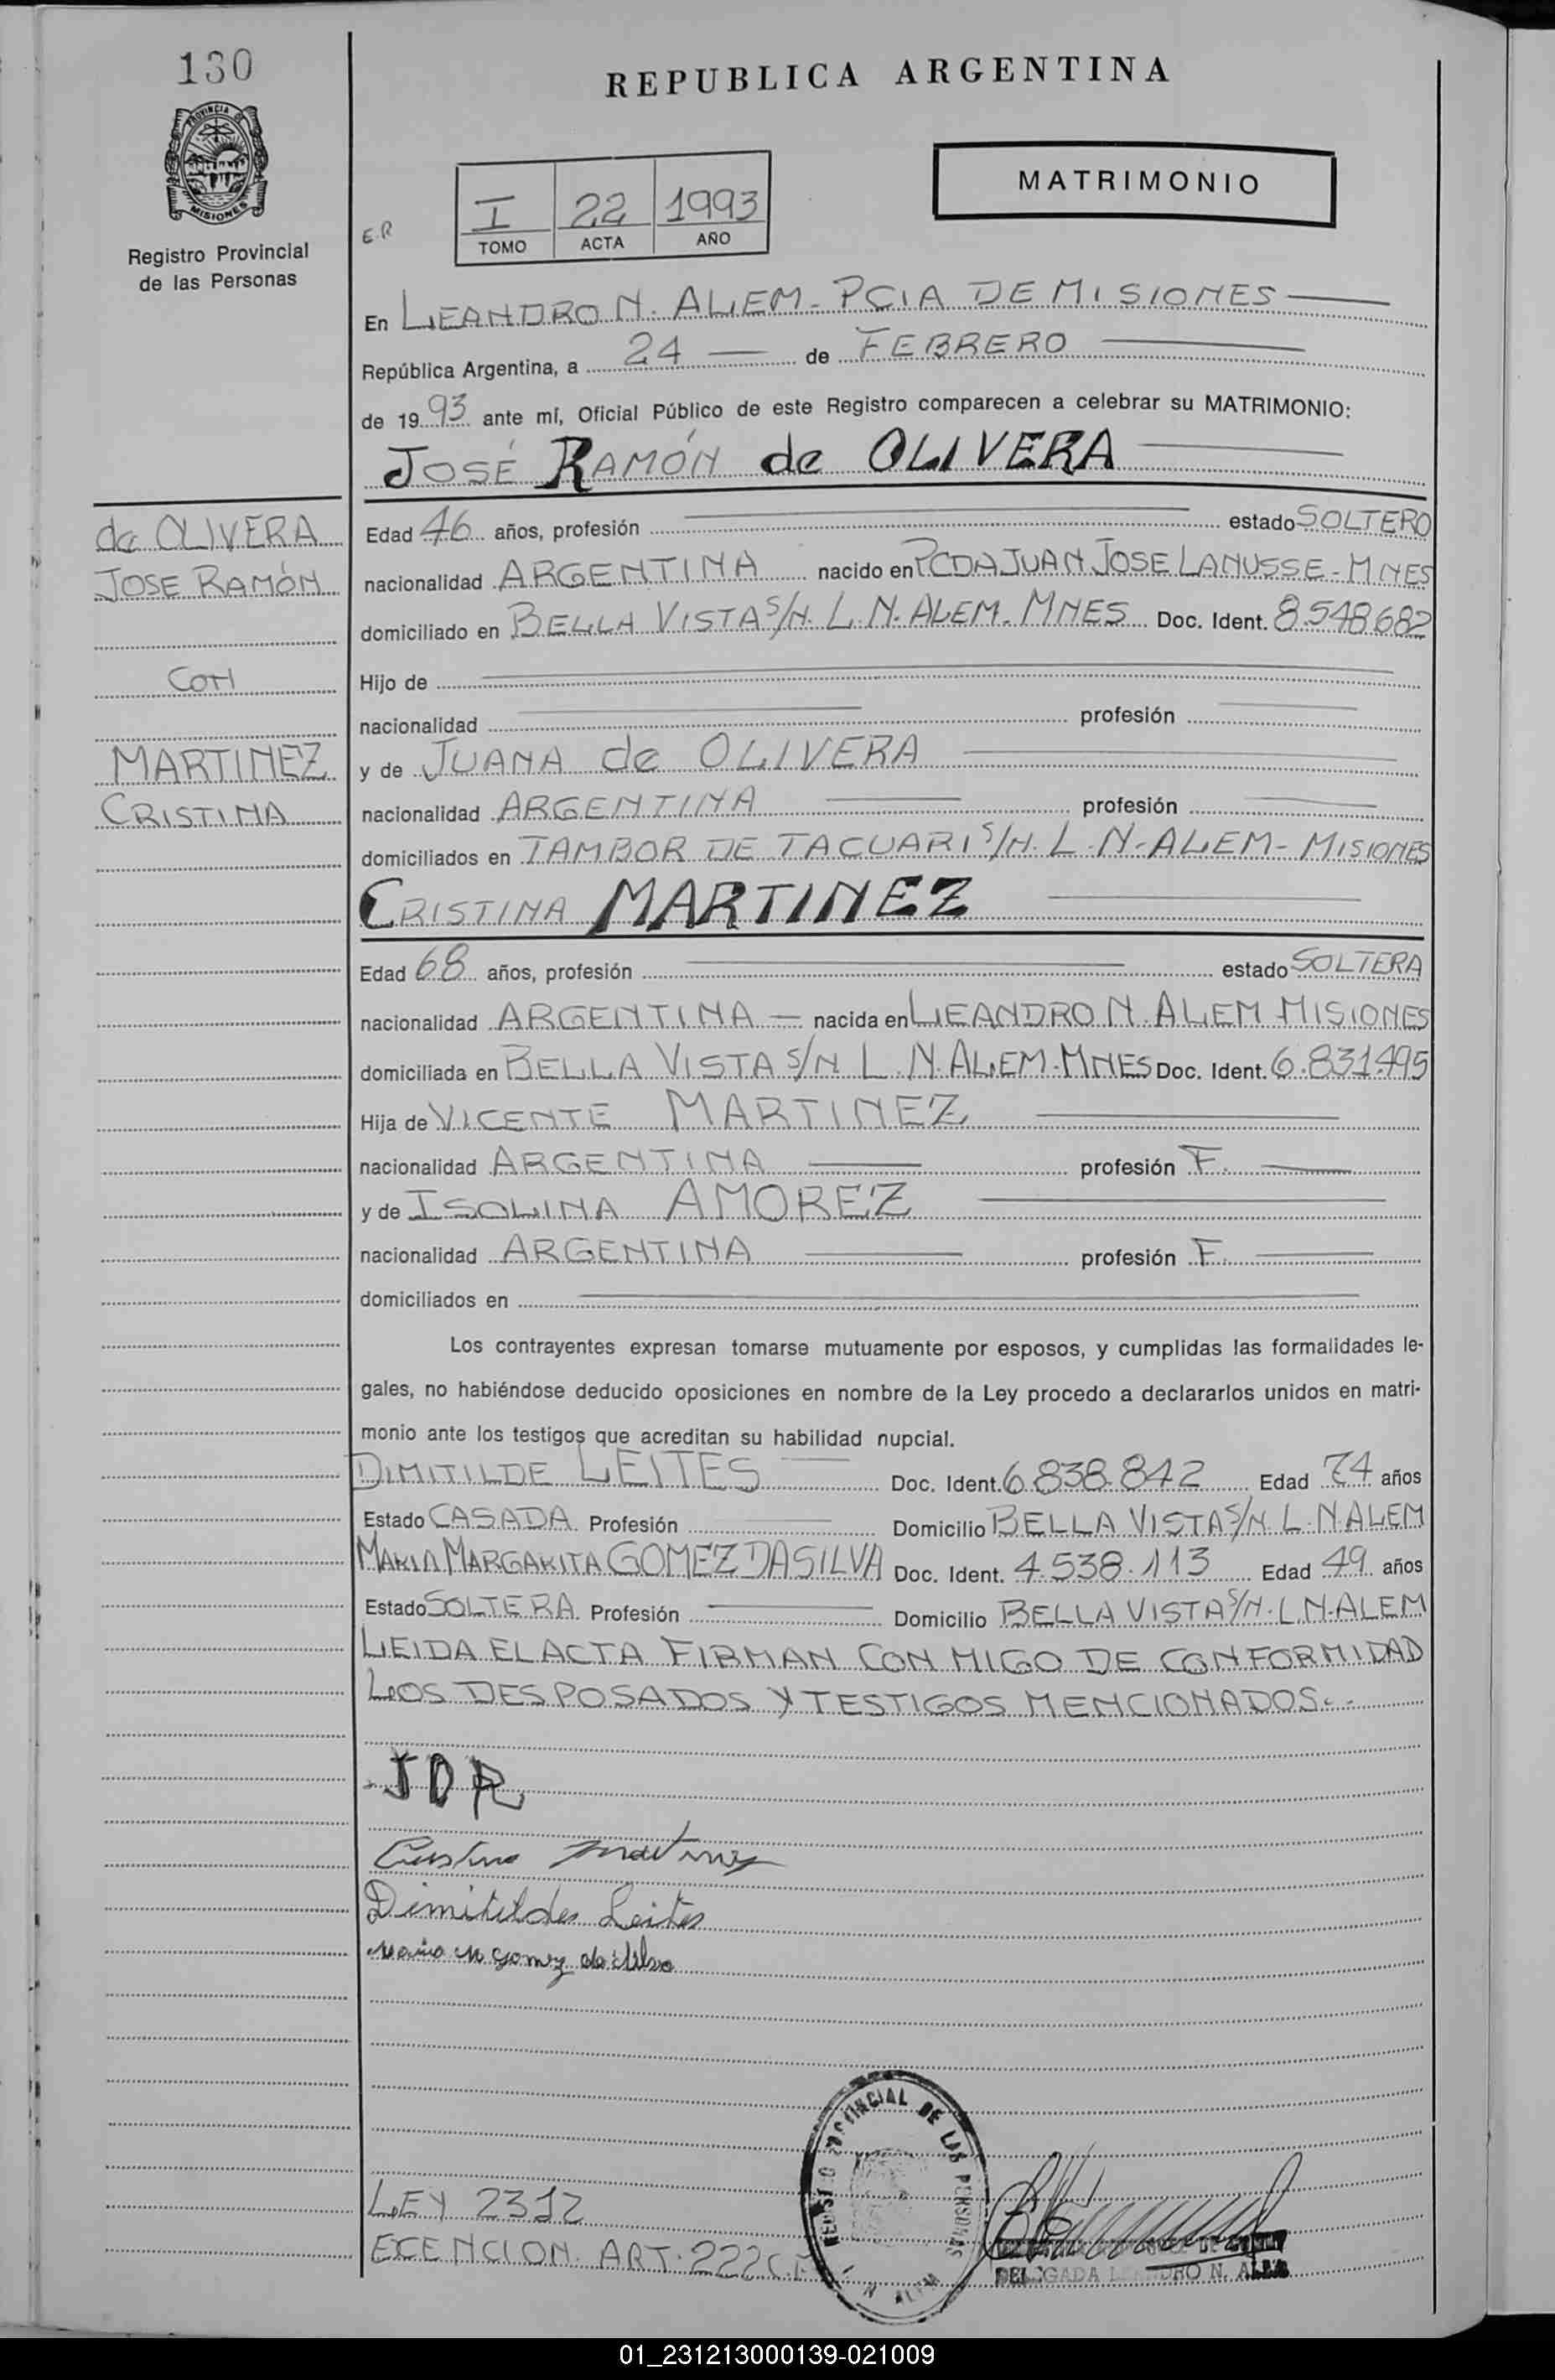 130
PROVINCIA DE
MISIONES
Registro Provincial
de las Personas
REPUBLICA ARGENTINA
MATRIMONIO
E.R
I 22 1993
TOMO ACTA AÑO
En LEANDRO N. ALEM - PCIA DE MISIONES
República Argentina, a 24 de FEBRERO
de 1993 ante mí, Oficial Público de este Registro comparecen a celebrar su MATRIMONIO:
JOSÉ RAMÓN de OLIVERA
de OLIVERA
JOSE RAMÓN
CON
MARTINEZ
CRISTINA
Edad 46 años, profesión estado SOLTERO
nacionalidad ARGENTINA nacido en PCDA JUAN JOSE LANUSSE - MNES
domiciliado en BELLA VISTA S/N. L.N. ALEM. MNES Doc. Ident. 8.548.682
Hijo de
nacionalidad profesión
y de JUANA de OLIVERA
nacionalidad ARGENTINA profesión
domiciliados en TAMBOR DE TACUARI S/N. L.N. ALEM - MISIONES
CRISTINA MARTINEZ
Edad 68 años, profesión estado SOLTERA
nacionalidad ARGENTINA nacida en LEANDRO N. ALEM MISIONES
domiciliada en BELLA VISTA S/N L.N. ALEM. MNES Doc. Ident. 6.831.495
Hija de VICENTE MARTINEZ
nacionalidad ARGENTINA profesión F.
y de ISOLINA AMOREZ
nacionalidad ARGENTINA profesión F.
domiciliados en
Los contrayentes expresan tomarse mutuamente por esposos, y cumplidas las formalidades le-
gales, no habiéndose deducido oposiciones en nombre de la Ley procedo a declararlos unidos en matri-
monio ante los testigos que acreditan su habilidad nupcial.
DIMITILDE LEITES Doc. Ident. 6.838.842 Edad 74 años
Estado CASADA Profesión Domicilio BELLA VISTA S/N L.N ALEM
MARIA MARGARITA GOMEZ DA SILVA Doc. Ident. 4.538.113 Edad 49 años
Estado SOLTERA Profesión Domicilio BELLA VISTA S/N. L.N. ALEM
LEIDA EL ACTA FIRMAN CON MIGO DE CONFORMIDAD
LOS DESPOSADOS Y TESTIGOS MENCIONADOS.-
JDR
Cristina Martinez
Dimitildes Leites
Maria M Gomez da Silva
LEY 2312
ECENCION ART. 222
REGISTRO PROVINCIAL DE LAS PERSONAS
N. ALEM
DELEGADA LEANDRO N. ALEM
01_231213000139-021009